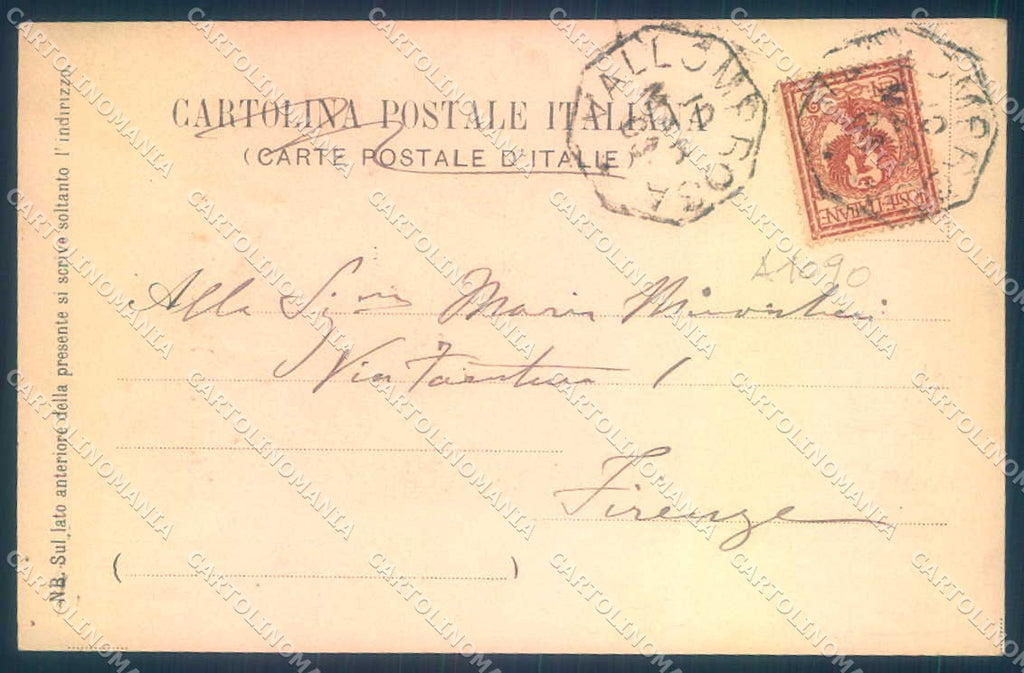 CARTOLINA POSTALE ITALIANA
(CARTE POSTALE D'ITALIE)
VALLOMBROSA
POSTE ITALIANE
A1090
Alla Sig.na Maria
Via Faentina 1
Firenze
NB. Sul lato anteriore della presente si scrive soltanto l'indirizzo.
CARTOLINOMANIA